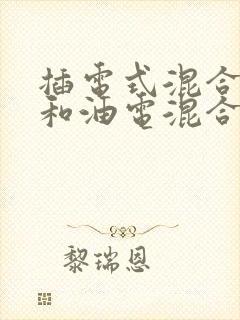 插電式混合
和油電混合
黎瑞恩